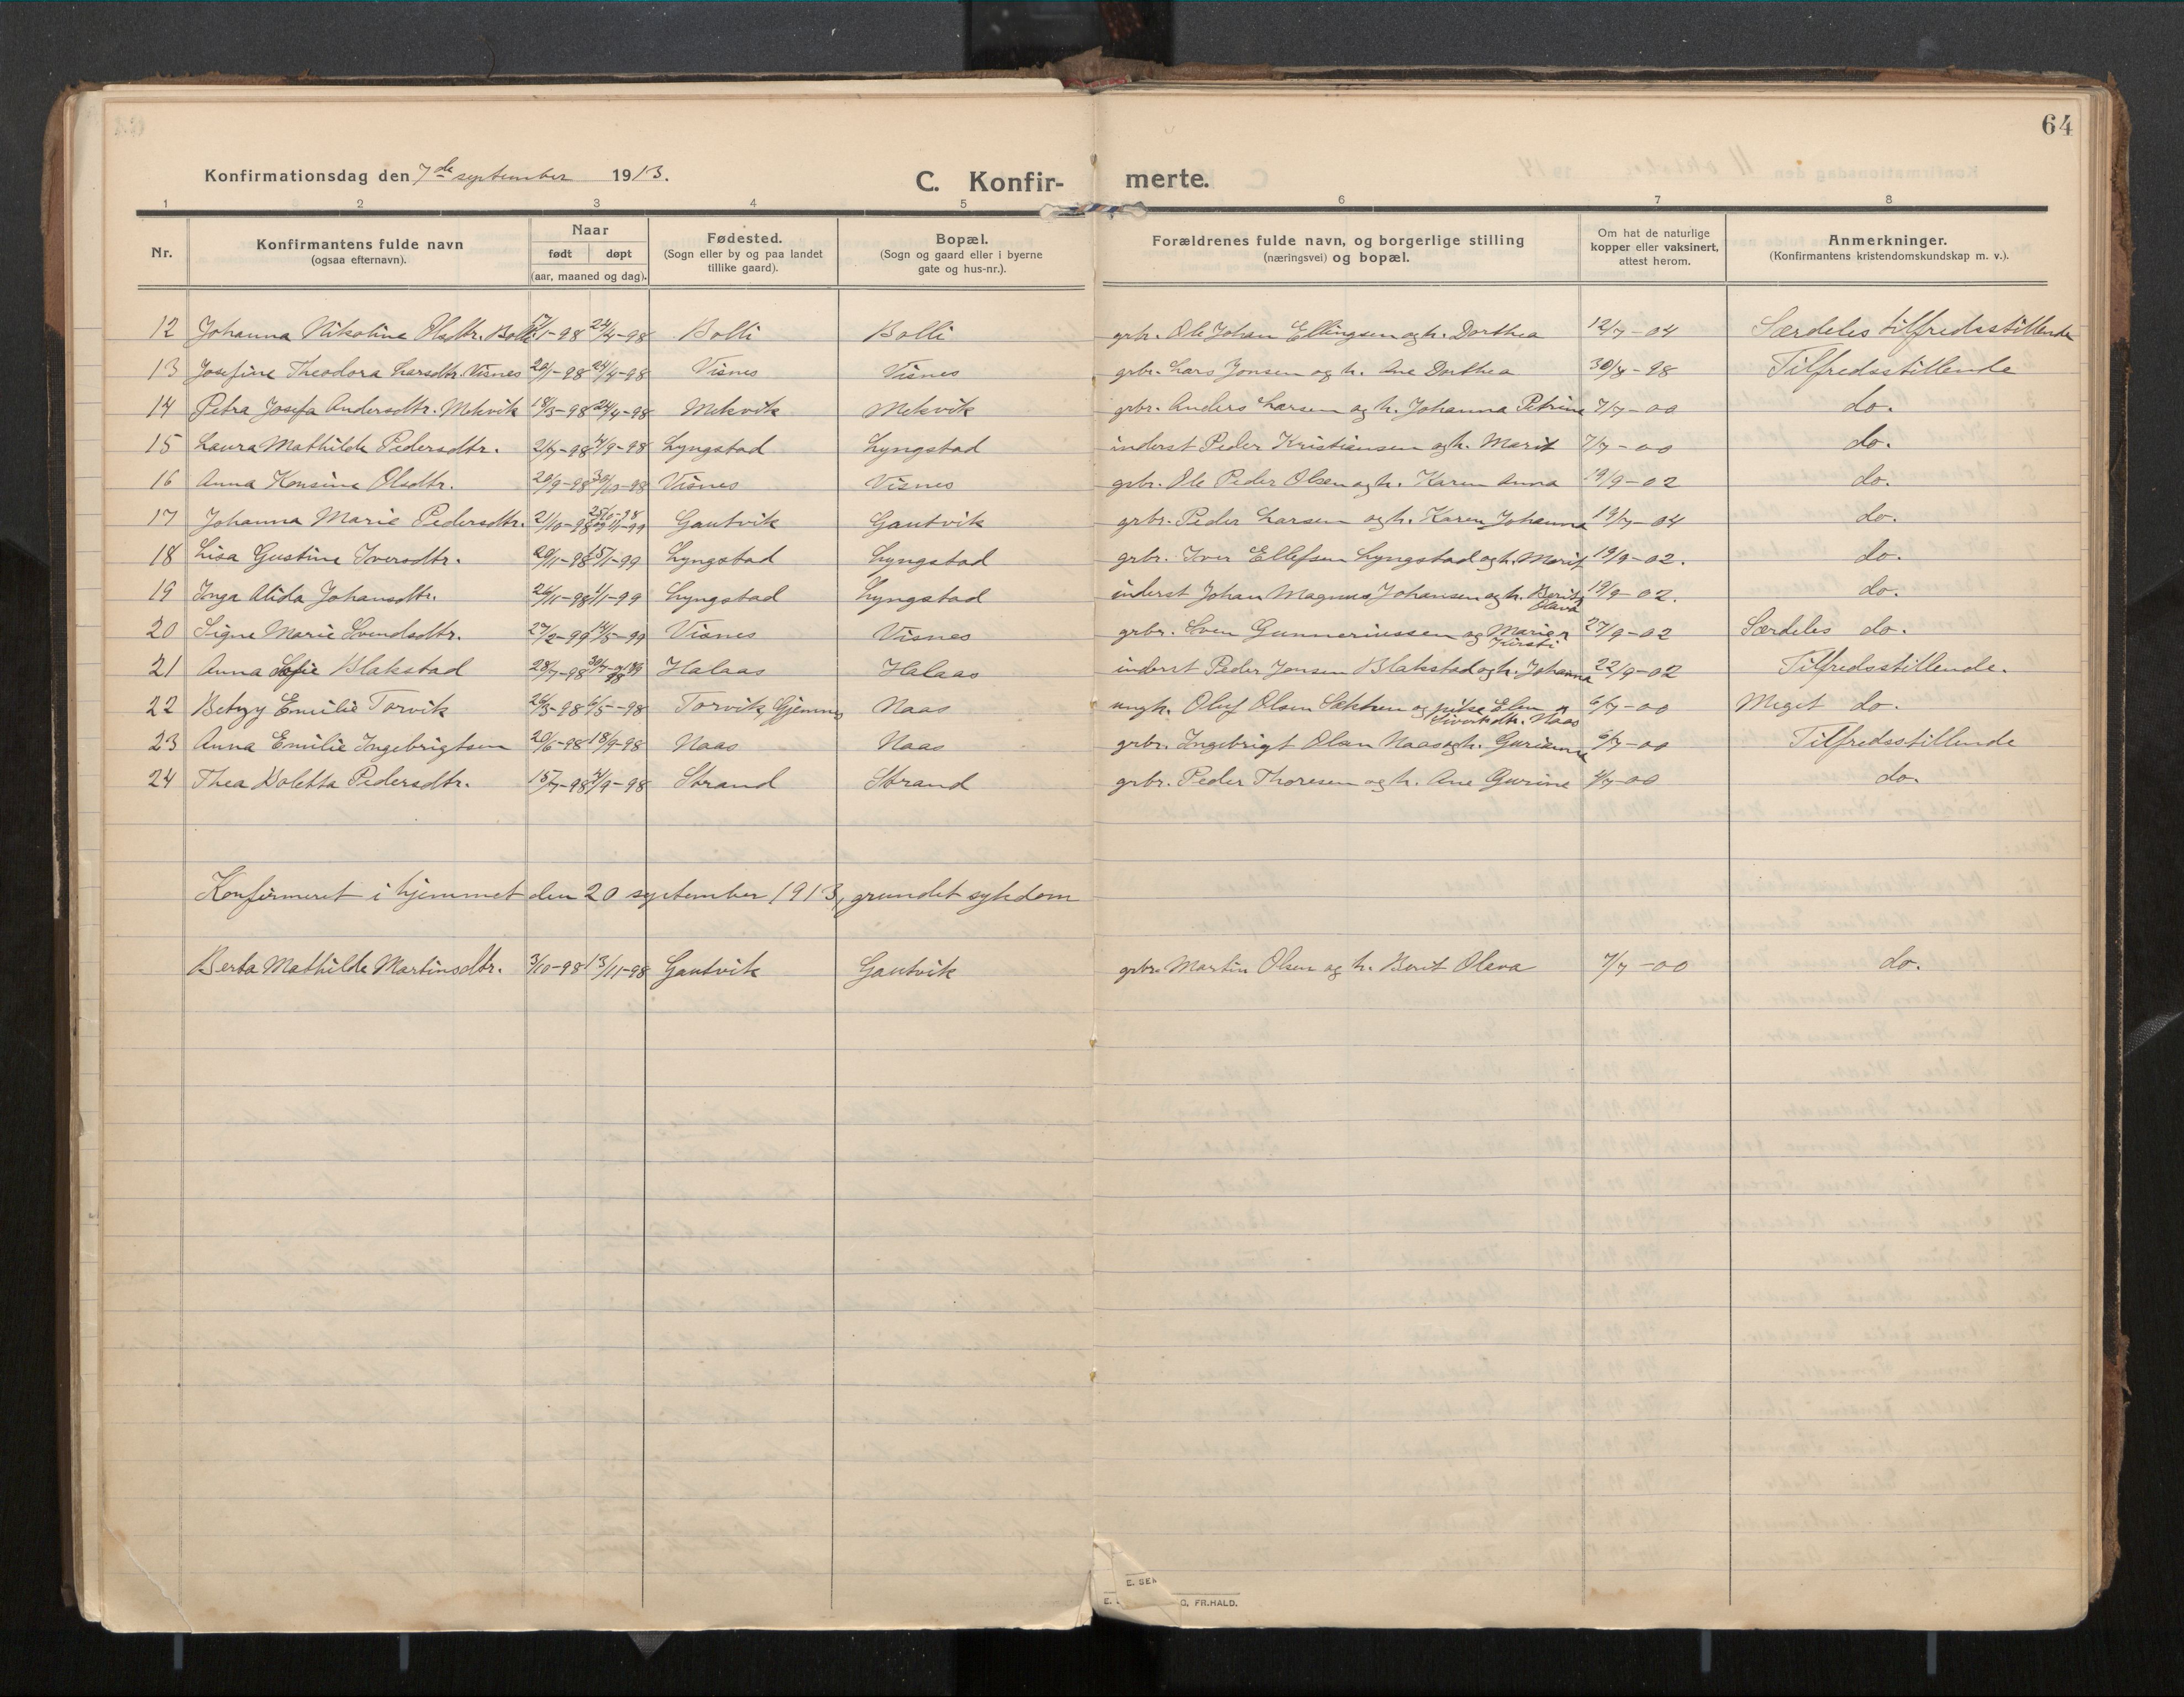 64
Konfirmationsdag den 7de september 1913.
C. Konfir- merte.
1 2 3 4 5 6 7 8
Nr.
Konfirmantens fulde navn
(ogsaa efternavn).
Naar
født døpt
(aar, maaned og dag).
Fødested.
(Sogn eller by og paa landet
tillike gaard).
Bopæl.
(Sogn og gaard eller i byerne
gate og hus-nr.).
Forældrenes fulde navn, og borgerlige stilling
(næringsvei) og bopæl.
Om hat de naturlige
kopper eller vaksinert,
attest herom.
Anmerkninger.
(Konfirmantens kristendomskundskap m. v.).
12 Johanna Nikoline Olsdtr. Bolli /1-98 24/4-98 Bolli Bolli grbr. Ole Johan Ellingsen og h. Dorthea 12/7-04 Særdeles tilfredsstillende
13 Josefine Theodora Larsdtr. Visnes 20/1-98 24/4-98 Visnes Visnes grbr. Lars Jonsen og h. Ane Dorthea 30/8-98 Tilfredsstillende
14 Petra Josefa Andersdtr. Mekvik 18/3-98 24/4-98 Mekvik Mekvik grbr. Anders Larsen og h. Johanna Petrine 7/7-00 do.
15 Laura Mathilde Pedersdtr. 2/7-98 4/9-98 Lyngstad Lyngstad inderst Peder Kristiansen og h. Marit 7/7-00 do.
16 Anna Konsine Olsdtr. 20/9-98 30/10-98 Visnes Visnes grbr. Ole Peder Olsen og h. Karen Anna 19/9-02 do.
17 Johanna Marie Pedersdtr. 21/10-98 25/10-98 og /1-99 Gautvik Gautvik grbr. Peder Larsen og h. Karen Johanna 12/7-04 do.
18 Lisa Gustine Iversdtr. 20/11-98 15/1-99 Lyngstad Lyngstad grbr. Iver Ellefsen Lyngstad og h. Marit 19/9-02. do.
19 Inga Alida Johansdtr. 26/11-98 1/1-99 Lyngstad Lyngstad inderst Johan Magnus Johansen og h. Berit Olava 19/9-02. do.
20 Signe Marie Svendsdtr. 27/2-99 14/5-99 Visnes Visnes grbr. Sven Gunneriussen og Marie Kirsti 27/9-02 Særdeles do.
21 Anna Sofie Blakstad 28/7-98 Halaas Halaas inderst Peder Jonsen Blakstad og h. Johanna 22/9-02 Tilfredsstillende.
22 Betzy Emilie Torvik 26/3-98 /5-98 Torvik, Gjemnes Naas ungk. Oluf Olsen og pike Elen Sivertsdtr. Naas 6/7-00 Meget do.
23 Anna Emilie Ingebrigtsen 20/6-98 18/9-98 Naas Naas grbr. Ingebrigt Olsen Naas og h. Gurianna 6/7-00 Tilfredsstillende
24 Thea Doletta Pedersdtr. 15/7-98 4/9-98 Strand Strand grbr. Peder Thoresen og h. Ane Gurine 4/7-00 do.
Konfirmeret i hjemmet den 20 september 1913, grundet sykdom
Berta Mathilde Martinsdtr. 3/10-98 13/11-98 Gautvik Gautvik grbr. Martin Olsen og h. Berit Olava 7/7-00 do.
E. SEM
FR.HALD.